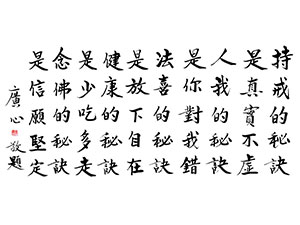 持戒的秘訣
是真實不虛
人我的秘訣
是你對我錯
法喜的秘訣
是放下自在
健康的秘訣
是少吃多走
念佛的秘訣
是信願堅定
廣心敬題